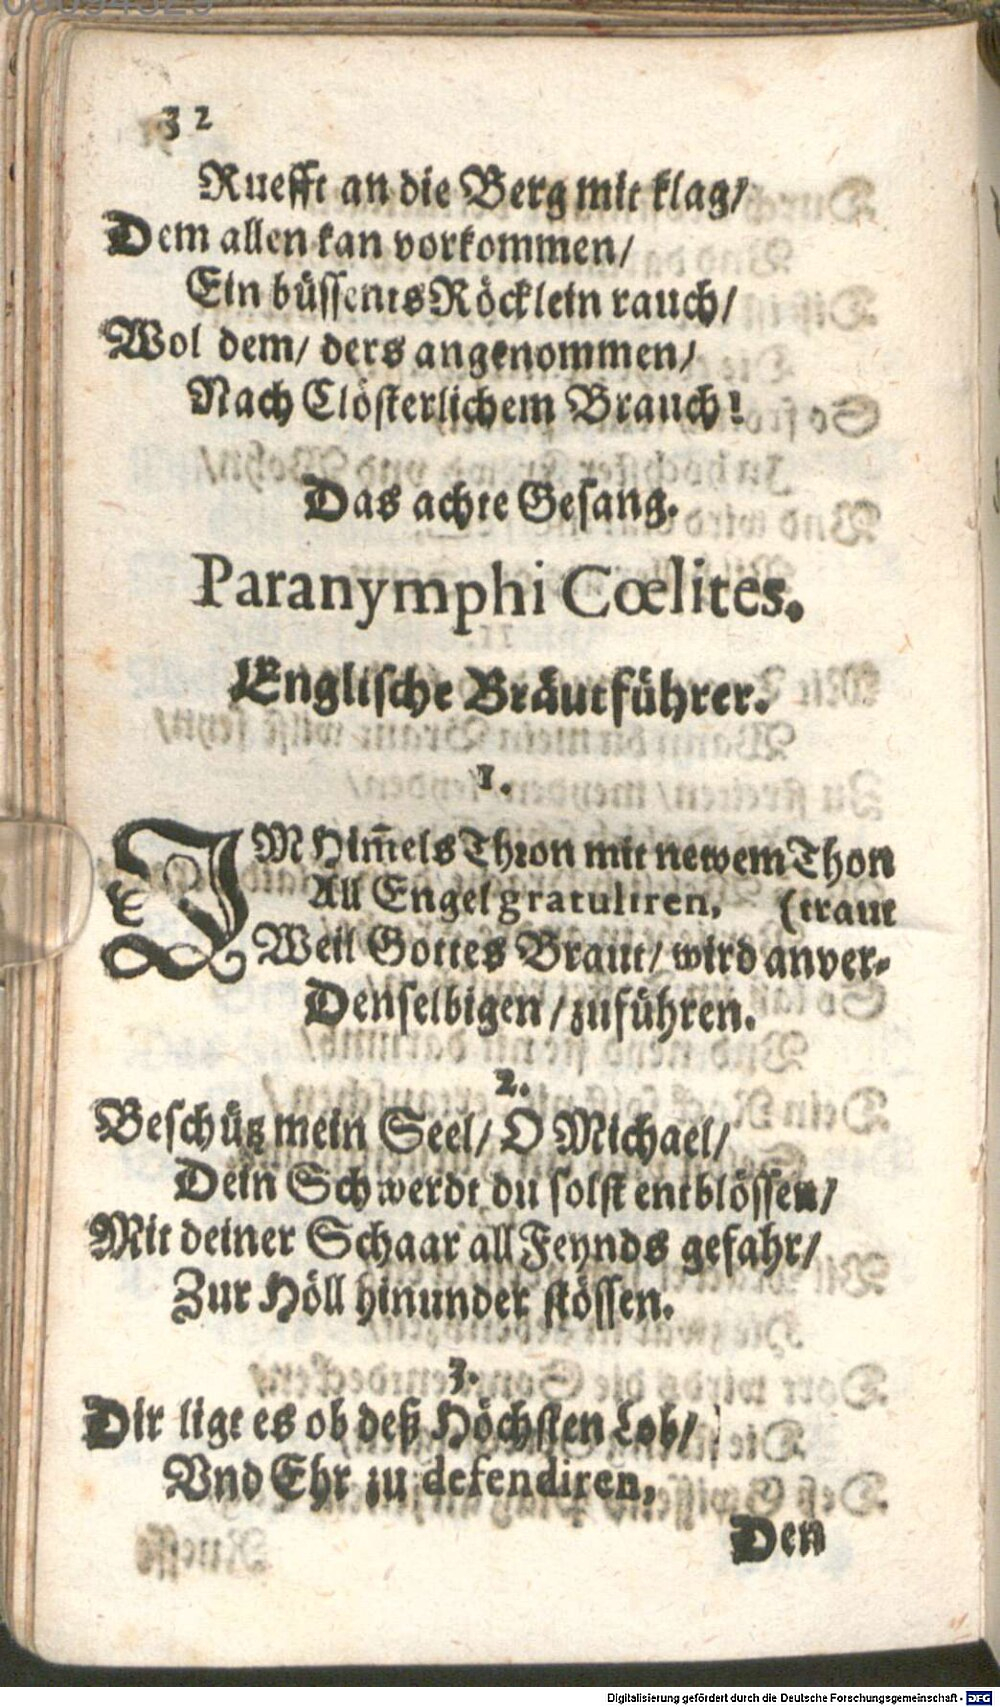 32
Ruefft an die Berg mit klag/
Dem allen kan vorkommen/
Ein büssents Röcklein rauch/
Wol dem/ ders angenommen/
Nach Clösterlichem Brauch!
Das achte Gesang.
Paranymphi Cœlites.
Englische Bräutführer.
1.
IM Him̄els Thron mit newem Thon
All Engel gratuliren, (traut
Weil Gottes Braut/ wird anver-
Denselbigen/ zuführen.
2.
Beschütz mein Seel/ O Michael/
Dein Schwerdt du solst entblössen/
Mit deiner Schaar all Feynds gefahr/
Zur Höll hinunder stössen.
3.
Dir ligt es ob deß Höchsten Lob/
Vnd Ehr zu defendiren,
Den
Digitalisierung gefördert durch die Deutsche Forschungsgemeinschaft - DFG